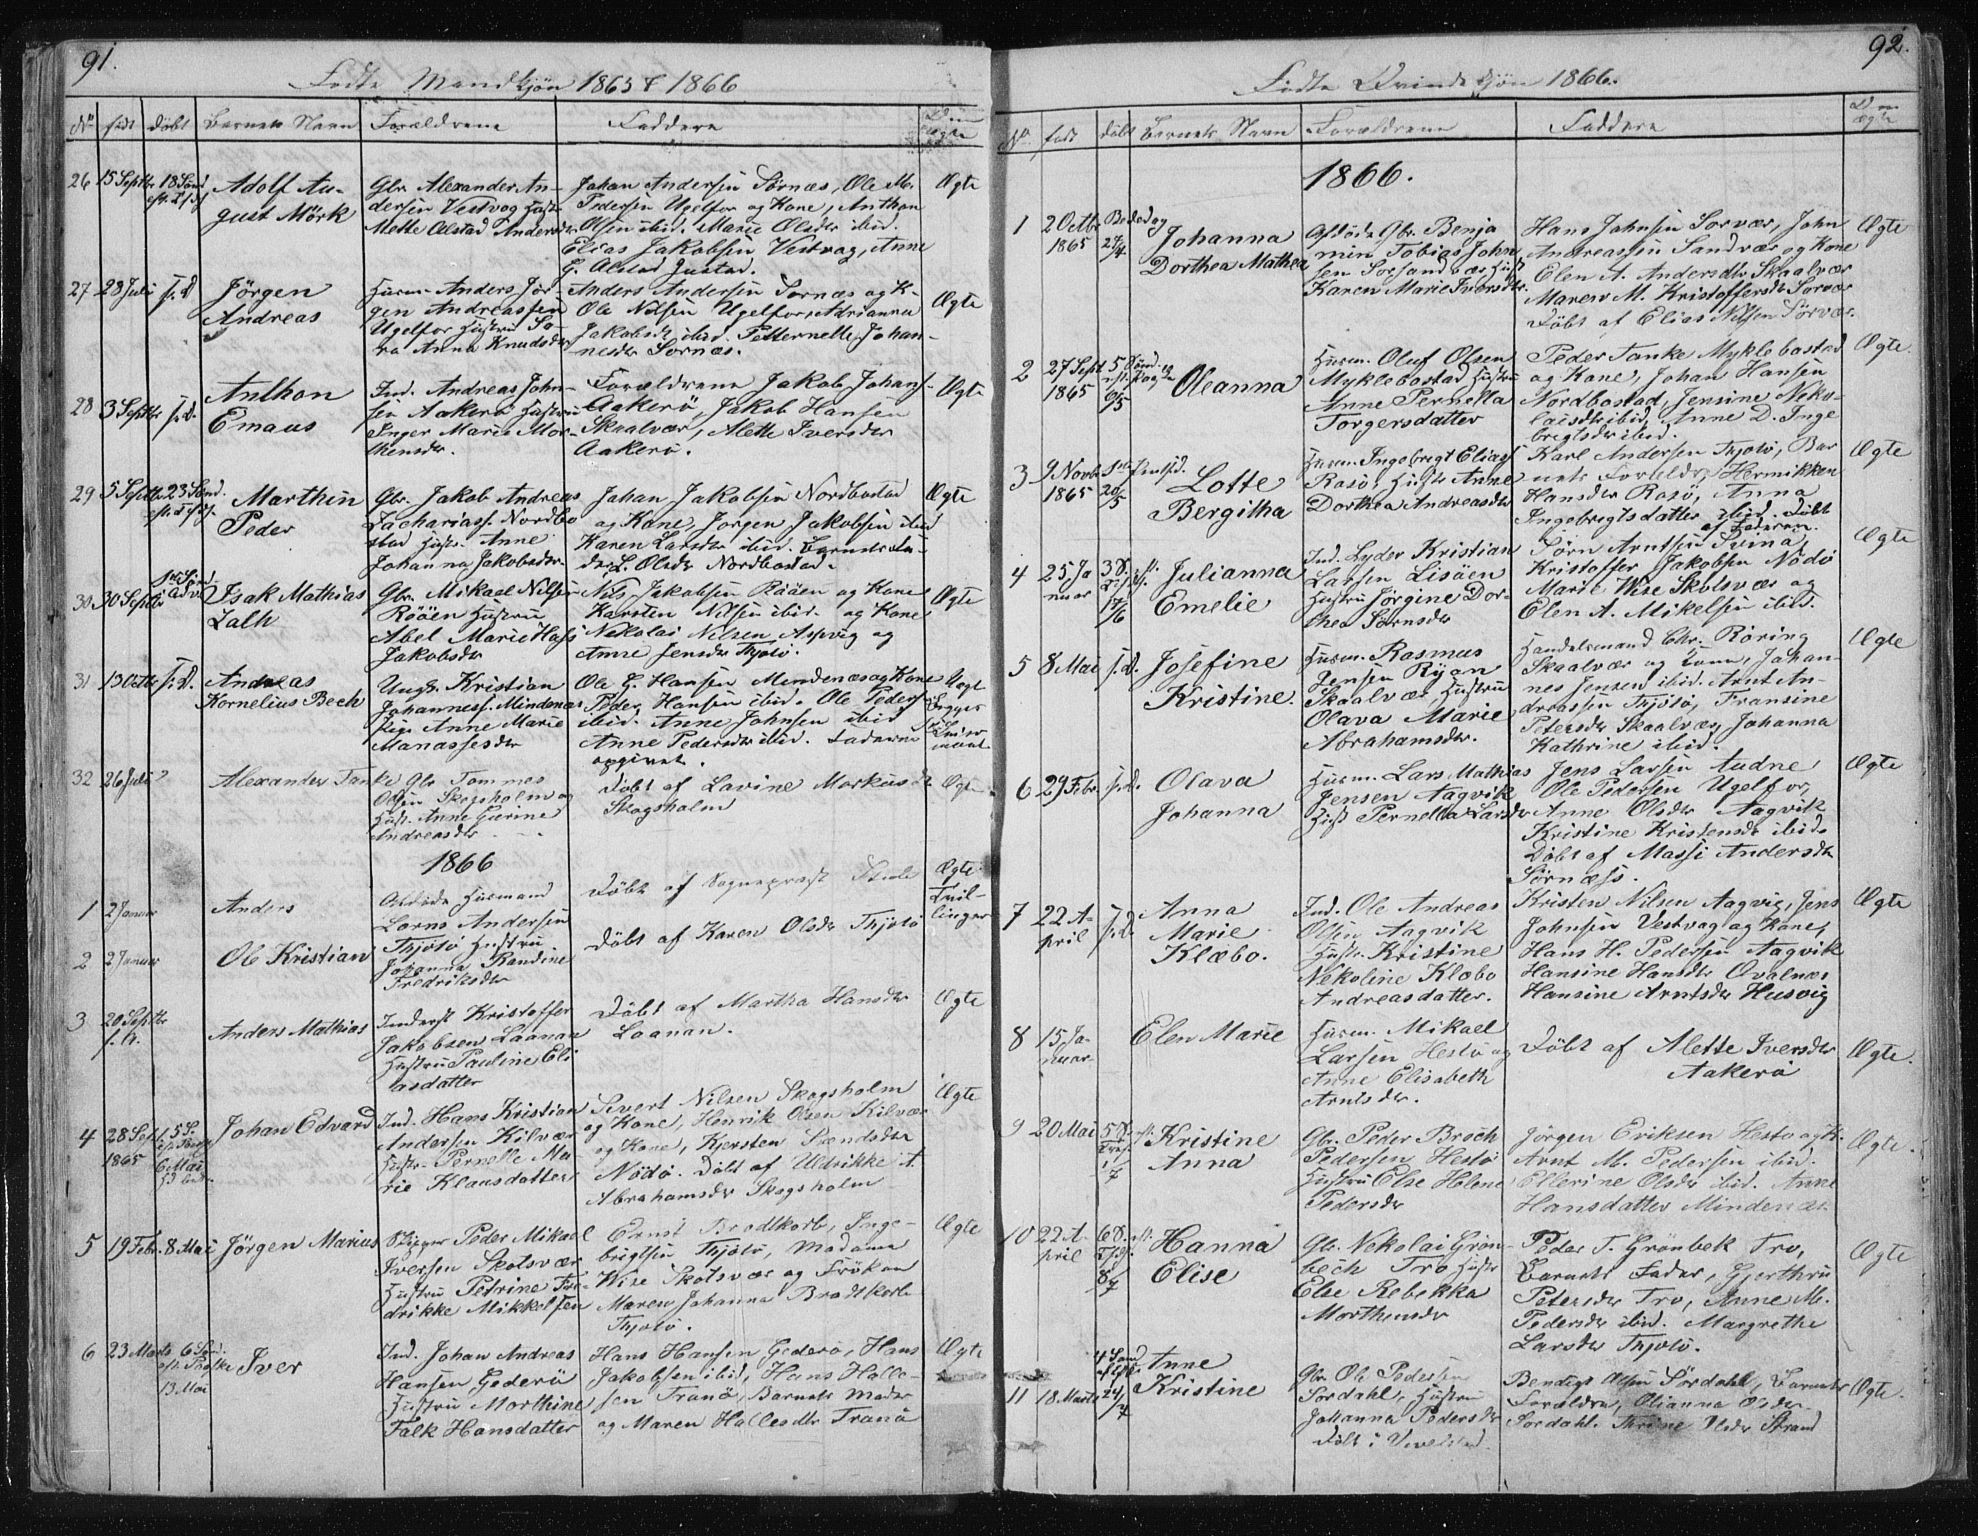 91.
Fødte Mandkjøn 1865 & 1866
No født døbt Barnets Navn Forældrene Faddere Om Ægte
26 15 Septbr 18 Sønd eft. Adolf August Mörk
Gbr. Alexander Andersen Vestvog Hustr
Mette Alstad Andersdr
Johan Andersen Sørnæs, Ole M.
Pedersen Ugelfor og Kone, Anthon
Olsen ibid. Marie Olsdr ibid.
Elias Jakobsen Vestvog, Anne
G. Alstad Justad.
Ægte
27 28 Juli s. D. Jörgen
Andreas
Husm. Anders Jörgen Andreassen
Ugelfor Hustru
Anna Knudsdr
Anders Andersen Sornæs og K.
Ole Nilsen Ugelfor, Adrianna
Jakobsdr ibid. Petternelle Johannesdr Sornæs.
Ægte
28 3 Septbr s. D. Anthon
Emaus
Ind. Andreas Johnsen Aakerö Hustru
Inger Marie Morthensdr.
Forældrene Jakob Johans.
Aakerö, Jakob Hansen
Skaalvær, Alette Iversdr
Aakerö.
Ægte
29 5 Septbr 23 Sønd. Marthin
Peder
Gbr. Jakob Andreas
Zachariass. Nordbostad Hustr. Anne
Johanna Jakobsdr.
Johan Jakobsen Nordbostad
og Kone, Jørgen Jakobsen ibid
Karen Larsdr ibid. Barnets Fader
L. Olsdr Nordbostad.
Ægte
30 30 Septbr Isak Mathias
Zalk
Gbr. Mikael Nilsen
Rööen Hustru
Abel Marie Hass
Jakobsdr
Nils Jakobsen Rööen og Kone
Karsten Nilsen ibid. og Kone
Nikolai Nilsen Aspvig og
Anne Jensdr Thjotö.
Ægte
31 13 Octbr s. D. Andreas
Kornelius Bech
Ungk. Kristian
Johanness. Mindenæs
Pige Anne Marie
Manassesdr
Ole G. Hansen Mindenæs og Kone
Peder Hansen ibid. Ole Peders.
ibid. Anne Johnsen ibid
Anne Pedersdr ibid. Faderen
opgivet.
Uægt
32 26 Juli Alexander Tanke
Gbr Tommes
Olsen Skogsholm og
Hust. Anne Gurine
Andreasdr
Döbt af Lavine Markusdr
Skogsholm
Ægte
1866
1 2 Januar Anders
Afdøde Husmand
Lorns Andersen
Thjötö Hustru
Johanna Randine
Fredriksdr
Döbt af Sogneprest
Ægte
Tvillinger
2 2 Januar Ole Kristian
Döbt af Karen Olsdr Thjötö
3 20 Septbr f. A. Anders Mathias
Inderst Kristoffer
Jakobsen Laanan
Hustru Pauline Eliasdatter
Döbt af Martha Hansdr
Laanan.
Ægte
4 28 Sept 1865 6 Mai Johan Edvard
Ind. Hans Kristian
Andersen Kilvær
Hustr. Pernelle Marie Klausdatter
Sivert Nilsen Skogsholm
og Kone, Henrik Olsen Kilvær
og Kone, Kjersten Svendsdr
Nödö. Döbt af Uldrikke A.
Abrahamsdr Skogsholm
Ægte
5 19 Febr. 8 Mai Jörgen Marius
Peder Mikael
Iversen Skotsvær
Hustru Petrine Fredrikke Mikkelsen
Ernst Brodtkorb, Ingebrigtsen Thjötö, Madame
Wise Skotsvær og Fröken
Maren Johanna Brodtkorb
Thjotö.
Ægte
6 23 Marts 6 Sönd. eft. Paaske 13 Mai Iver
Ind. Johan Andreas
Hansen Gederö
Hustru Morthine
Falk Hansdatter
Hans Hansen Gederö, Hans
Jakobsen ibid, Hans Hallesen Tranö, Barnets Moder
og Maren Hallesdtr Tranö
Ægte
92.
Fødte Qvindekjön 1866.
No født döbt Barnets Navn Forældrene Faddere Om ægte
1866.
1 2 Octbr 1865 Bededag 27/4 Johanna
Dorthea Mathea
Afdøde Gbr Benjamin Tobias Johnsen Sorsandvær Hust
Karen Marie Iversdr.
Hans Johnsen Sorvær, John
Andreassen Sandvær og Kone
Elen A. Andersdtr Skaalvær
Maren M. Kristoffersdr Sorvær
Döbt af Elias Nilsen Sörvær.
Ægte
2 27 Sept 1865 5 Sønd. eft. Paaske 9/5 Oleanna
Husm. Oluf Olsen
Myklebostad Hustru
Anne Pernella
Torgersdatter
Peder Tanke Myklebostad
og Kone, Johan Hansen
Nordbostad, Jensine Nekolaisdtr ibid, Anne D. Ingebrigtsdr ibid.
Ægte
3 9 Novbr 1865 20/5 Lotte
Bergitha
Husm. Ingebrigt Eliass
Rasö, Hustr Anne
Dorthea Andreasdtr
Karl Andersen Thjotö, Barnets Forældre, Hennikken
Hansdr Rasö, Anna
Ingebrigtsdatter ibid. Döbt
af Faderen.
Ægte
4 25 Januar 17/6 Julianna
Emelie
Ind. Lyder Kristian
Larsen Lisöen
Hustru Jörgine Dorthea Sörnsdr
Sörn Arntsen Svina,
Kristoffer Jakobsen Nödö
Marie Wise Skotsvær og
Elen A. Mikelsen ibid.
Ægte
5 8 Mai s. d. Josefine
Kristine.
Husm. Rasmus
Jensen Ryan
Skaalvær, Hustru
Olava Marie
Abrahamsdr.
Handelsmand Chr. Röring
Skaalvær og Kone, Johannes Jensen ibid. Arnt Andreassen Thjötö, Fransine
Petersdr Skaalvær, Johanna
Kathrine ibid.
Ægte
6 29 Febr. s. d. Olava
Johanna
Husm. Lars Mathias
Jensen Aagvik
Hust Pernella Larsdr
Jens Larsen Audne
Ole Pedersen Ugelfor,
Anne Olsdr Aagvik
Kristine Kristensdr ibid.
Döbt af Massi Andersdr
Sörnæss.
Ægte
7 22 April s. d. Anna
Marie
Klæbo.
Ind. Ole Andreas
Olsen Aagvik
Hustr. Kristine
Nekoline Klæbo
Andreasdatter.
Kristen Nilsen Aagvig, Jens
Johnsen Vestvog og Kone,
Hans H. Pedersen Aagvik
Hansine Hansdr Qvalnæs
Hansine Arntsdr Husvig
Ægte
8 15 Januar Elen Marie
Husm. Mikael
Larsen Hestö og
Anne Elisabeth
Arntsdr.
Döbt af Alette Iversdr
Aakerö
Ægte.
9 20 Mai 1/7 Kristine
Anna
Gbr. Peder Broch
Pedersen Hestö
Hustru Else Helene
Pedersdr
Jörgen Eriksen Hestö og K.
Arnt M. Pedersen ibid.
Ellerine Olsdr ibid. Anne
Hansdatter Mindenæs
Ægte.
10 22 April 8/7 Hanna
Elise
Gbr. Nekolai Grönbech Tro Hustr
Else Rebekka
Morthensdr
Peder T. Grönbek Tro,
Barnets Fader, Gjerthru
Petersdr Tro, Anne M.
Pedersdr ibid. Margrethe
Larsdr Thjotö.
Ægte
11 18 Marts 4 Sønd 24/7 Anne
Kristine
Gbr Ole Pedersen
Sördahl, Hustru
Johanna Pedersdr
Döbt i Vevelstad.
Bendigt Olsen Sördahl, Barnets
Forældre, Olianna Olsdr
Sördahl. Thrine Olsdr Strand
Ægte.